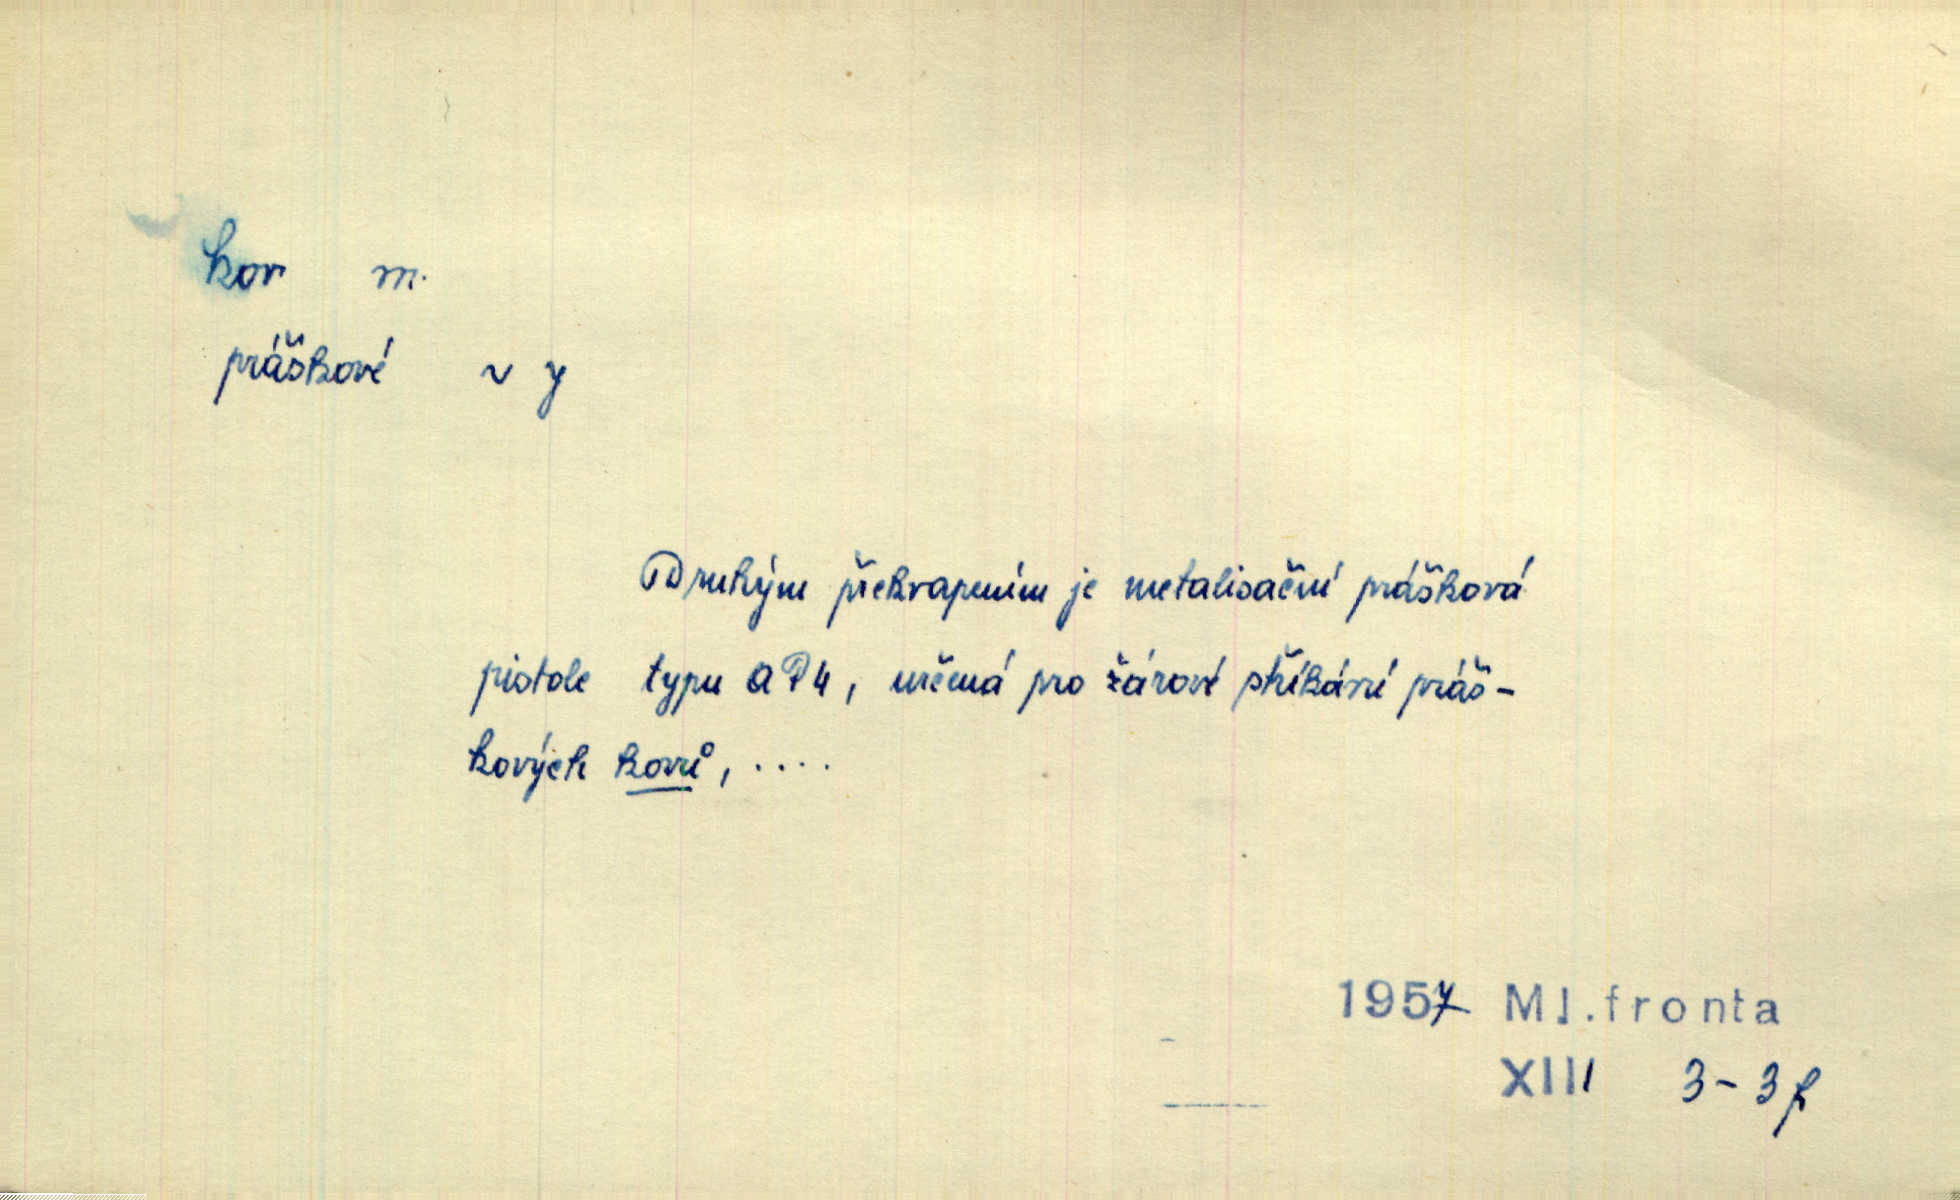 kov m.
práškové ~ y
Druhým překvapením je metalisační prášková
pistole typu AP4, určená pro žárové stříkání práš-
kových kovů, ....
1957 Ml.fronta
XIII 3-3f